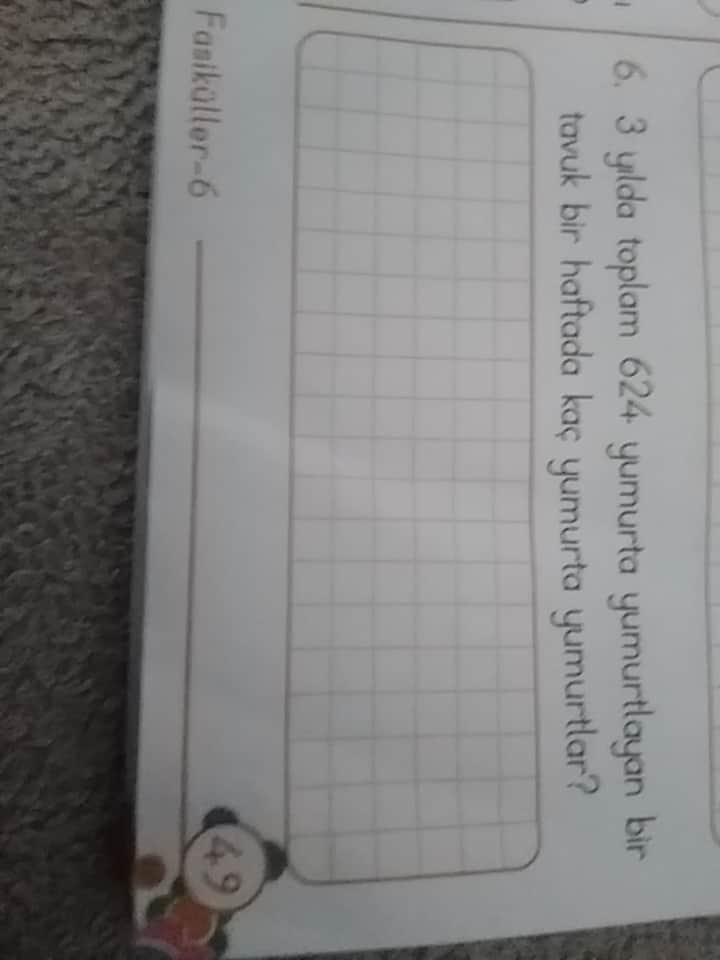 6. 3 yılda toplam 624 yumurta yumurtlayan bir
tavuk bir haftada kaç yumurta yumurtlar?
Fasiküller-6
49